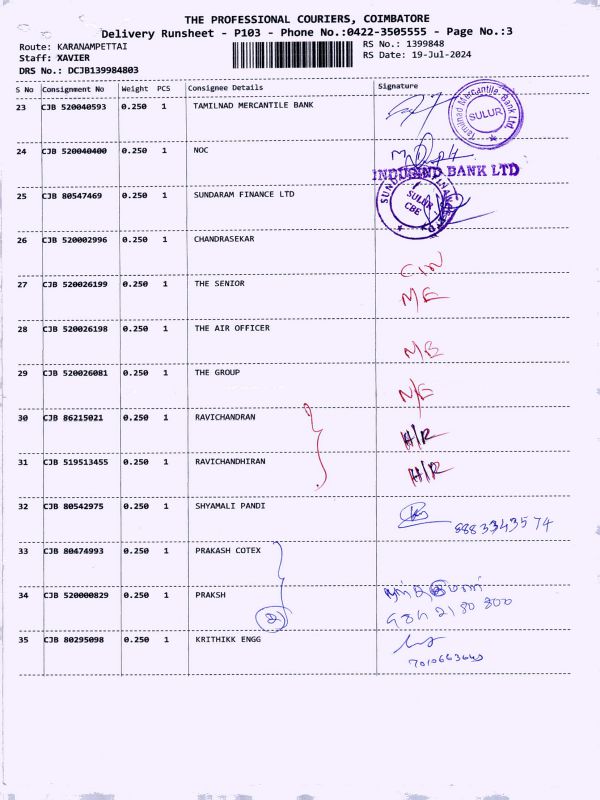 THE PROFESSIONAL COURIERS, COIMBATORE
Delivery Runsheet - P103 - Phone No.:0422-3505555 - Page No.:3
Route: KARANAMPETTAI
RS No.: 1399848
Staff: XAVIER
RS Date: 19-Jul-2024
DRS No.: DCJB139984803
S No Consignment No Weight PCS Consignee Details Signature
23 CJB 520040593 0.250 1 TAMILNAD MERCANTILE BANK
Tamilnad Mercantile Bank Ltd. SULUR
24 CJB 520040400 0.250 1 NOC
INDUSIND BANK LTD
25 CJB 80547469 0.250 1 SUNDARAM FINANCE LTD
SULUR CBE
26 CJB 520002996 0.250 1 CHANDRASEKAR
CIN
27 CJB 520026199 0.250 1 THE SENIOR M/E
28 CJB 520026198 0.250 1 THE AIR OFFICER
M/E
29 CJB 520026081 0.250 1 THE GROUP
M/E
30 CJB 86215021 0.250 1 RAVICHANDRAN H/R
31 CJB 519513455 0.250 1 RAVICHANDHIRAN H/R
32 CJB 80542975 0.250 1 SHYAMALI PANDI
8883343574
33 CJB 80474993 0.250 1 PRAKASH COTEX
34 CJB 520000829 0.250 1 PRAKSH
2
35 CJB 80295098 0.250 1 KRITHIKK ENGG